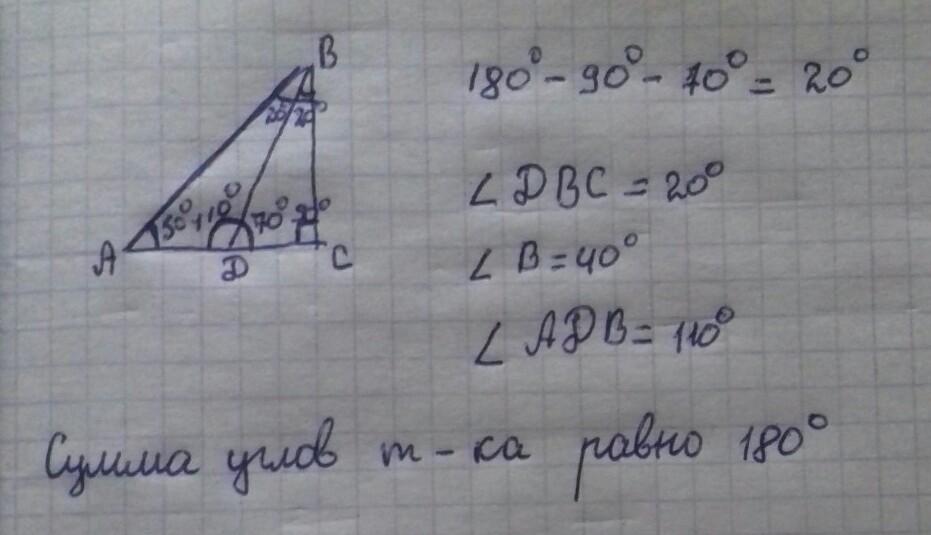 B
180° - 90° - 70° = 20°
20° 20°
∠ DBC = 20°
50° 110° 70° 90°
A D C
∠ B = 40°
∠ ADB = 110°
Сумма углов т-ка равно 180°